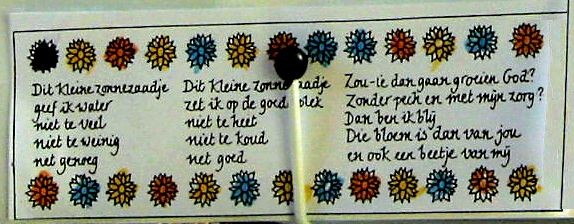 Dit kleine zonnezaadje
geef ik water
niet te veel
niet te weinig
net genoeg
Dit kleine zonnezaadje
zet ik op de goede plek
niet te heet
niet te koud
net goed
Zou-ie dan gaan groeien God?
Zonder pech en met mijn zorg?
Dan ben ik blij
Die bloem is dan van jou
en ook een beetje van mij